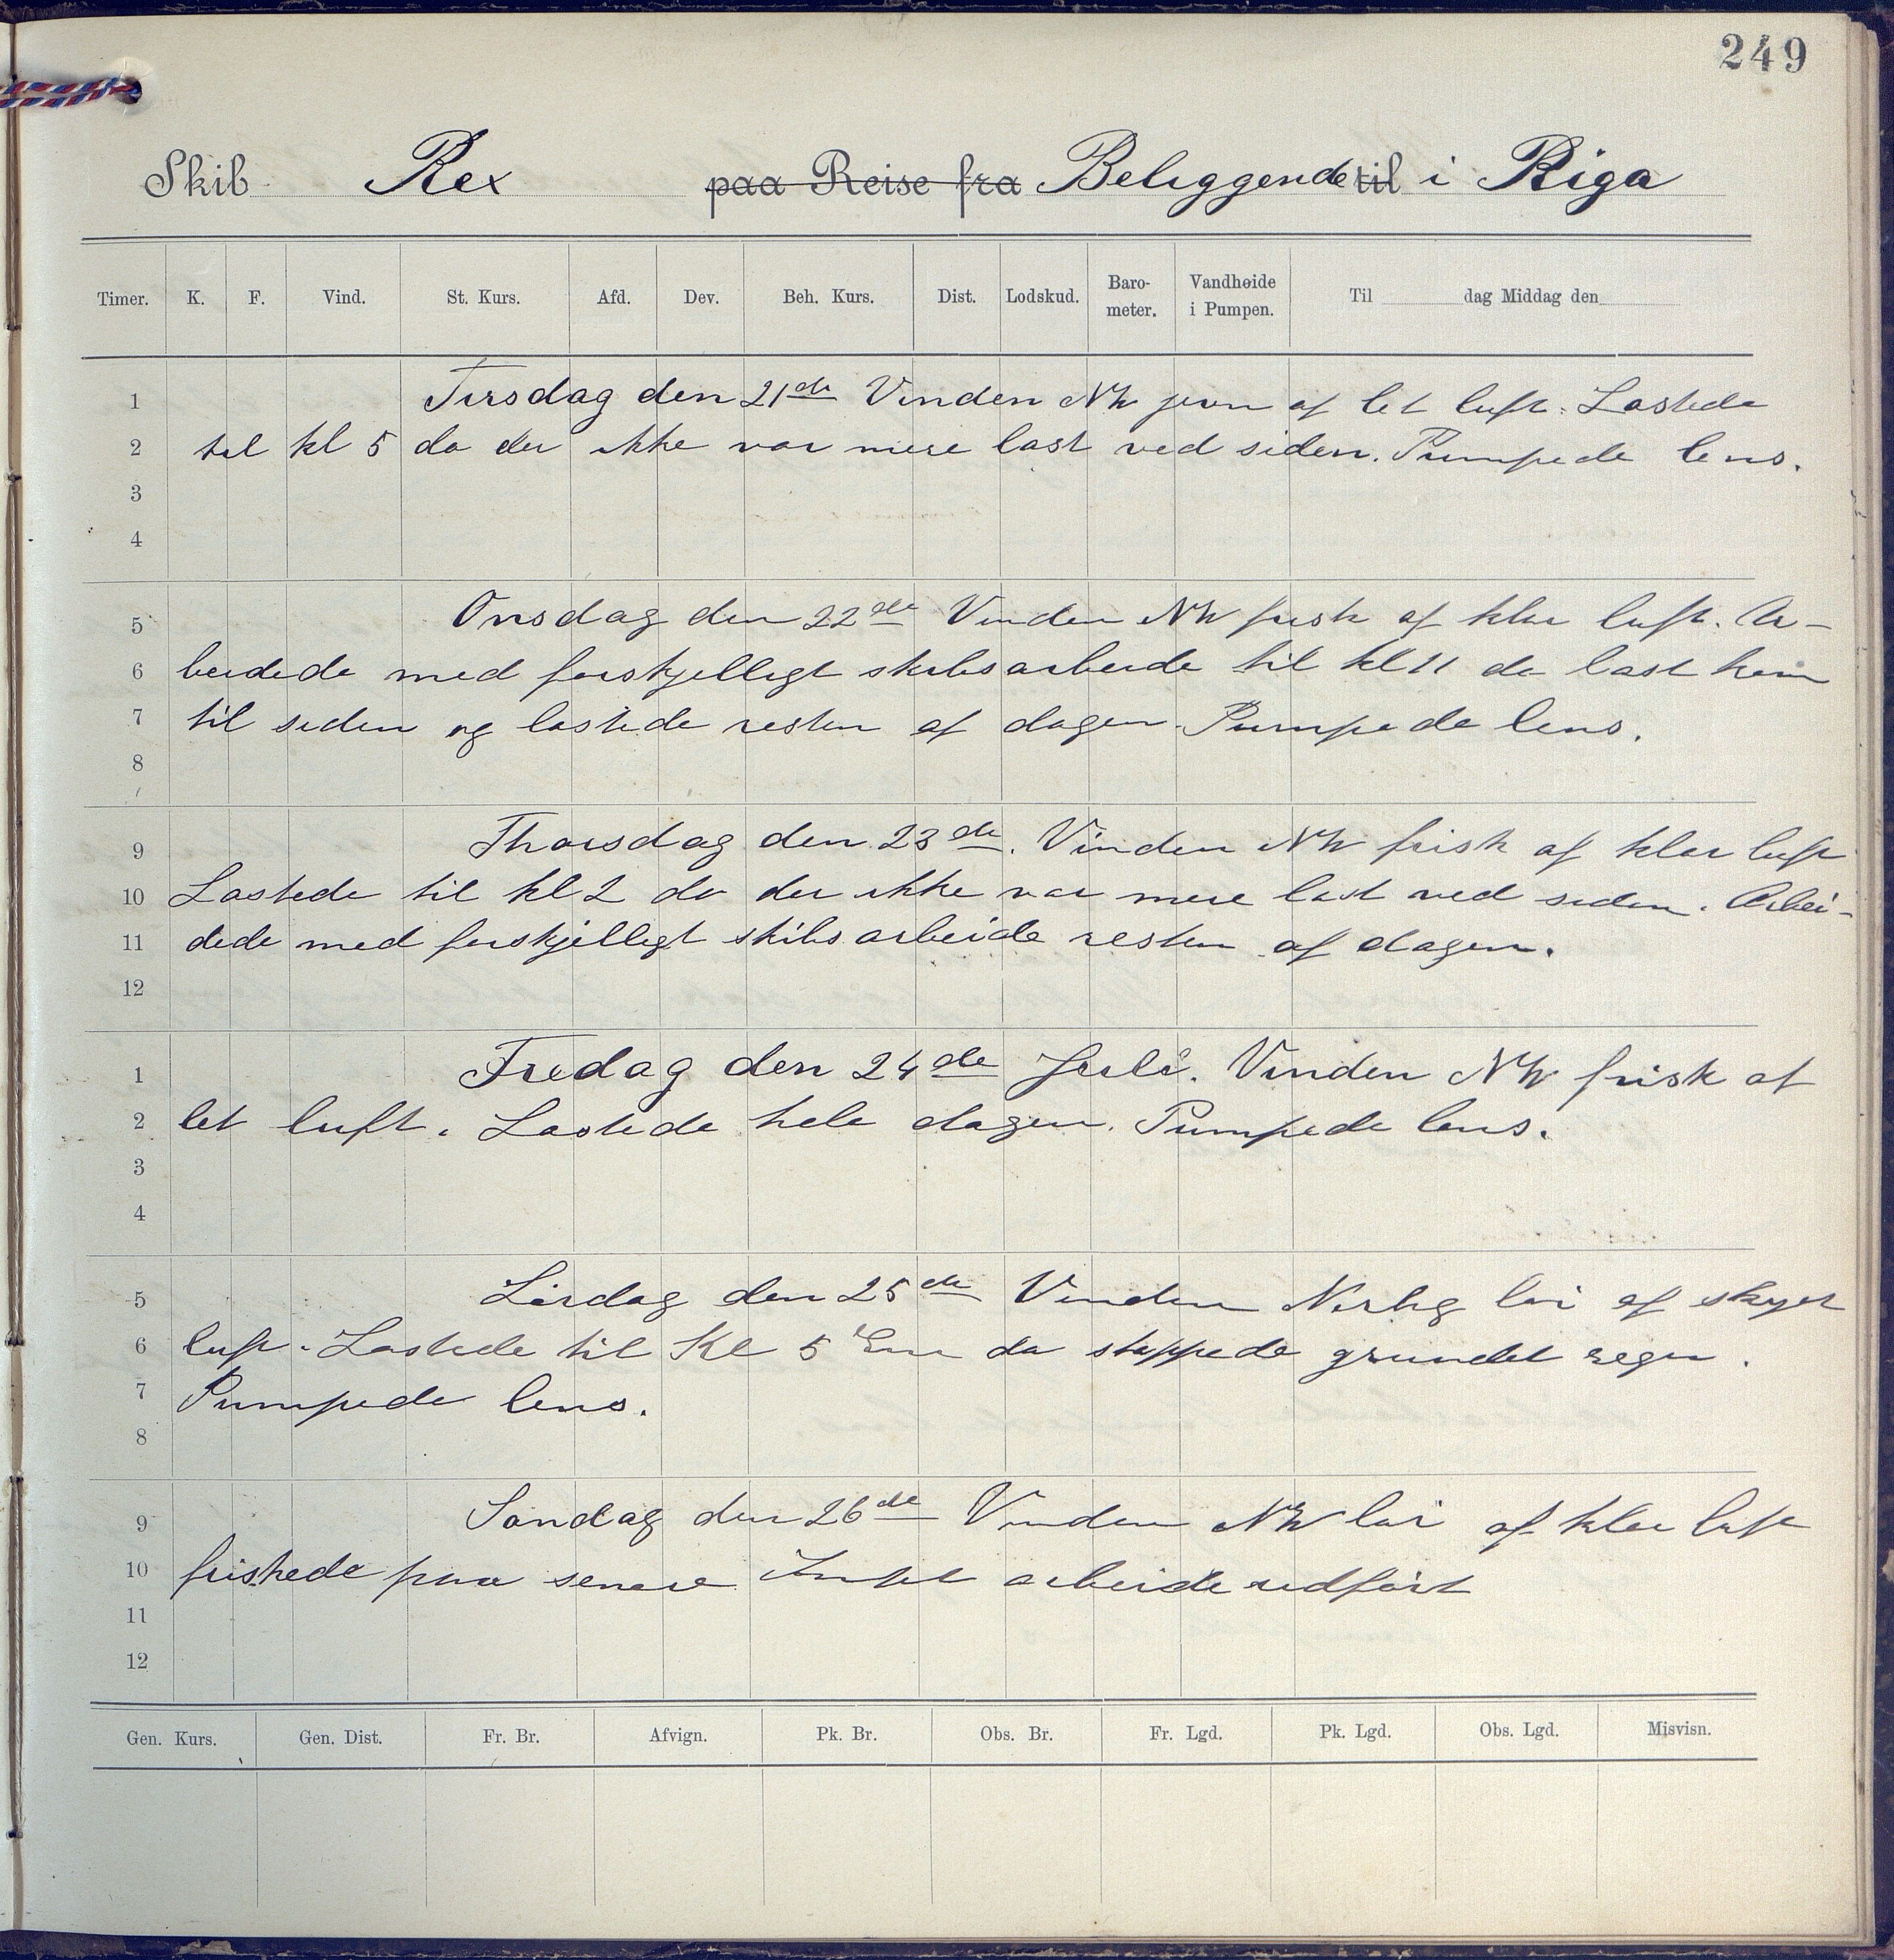 249
Skib Rex paa Reise fra Beliggende til i Riga
Timer. K. F. Vind. St. Kurs. Afd. Dev. Beh. Kurs. Dist. Lodskud. Baro-meter. Vandhøide i Pumpen. Til dag Middag den
1 Tirsdag den 21de Vinden NW jevn af let luft. Lastede
2 til kl 5 da der ikke var mere last ved siden. Pumpede lens.
3
4
5 Onsdag den 22de Vinden NW frisk af klar luft. Ar-
6 beidede med forskjelligt skibsarbeide til kl 11 da last kom
7 til siden og lastede resten af dagen. Pumpede lens.
8
9 Thorsdag den 23de. Vinden NW frisk af klar luft
10 Lastede til kl 2 da der ikke var mere last ved siden. Arbei-
11 dede med forskjelligt skibsarbeide resten af dagen.
12
1 Fredag den 24de Juli. Vinden NW frisk af
2 let luft. Lastede hele dagen. Pumpede lens.
3
4
5 Lördag den 25de Vinden Norlig löi af skyet
6 luft. Lastede til Kl 5 Em da stoppede grundet regn.
7 Pumpede lens.
8
9 Söndag den 26de Vinden NW löi af klar luft
10 friskede paa senere Intet arbeide udfört
11
12
Gen. Kurs. Gen. Dist. Fr. Br. Afvign. Pk. Br. Obs. Br. Fr. Lgd. Pk. Lgd. Obs. Lgd. Misvisn.